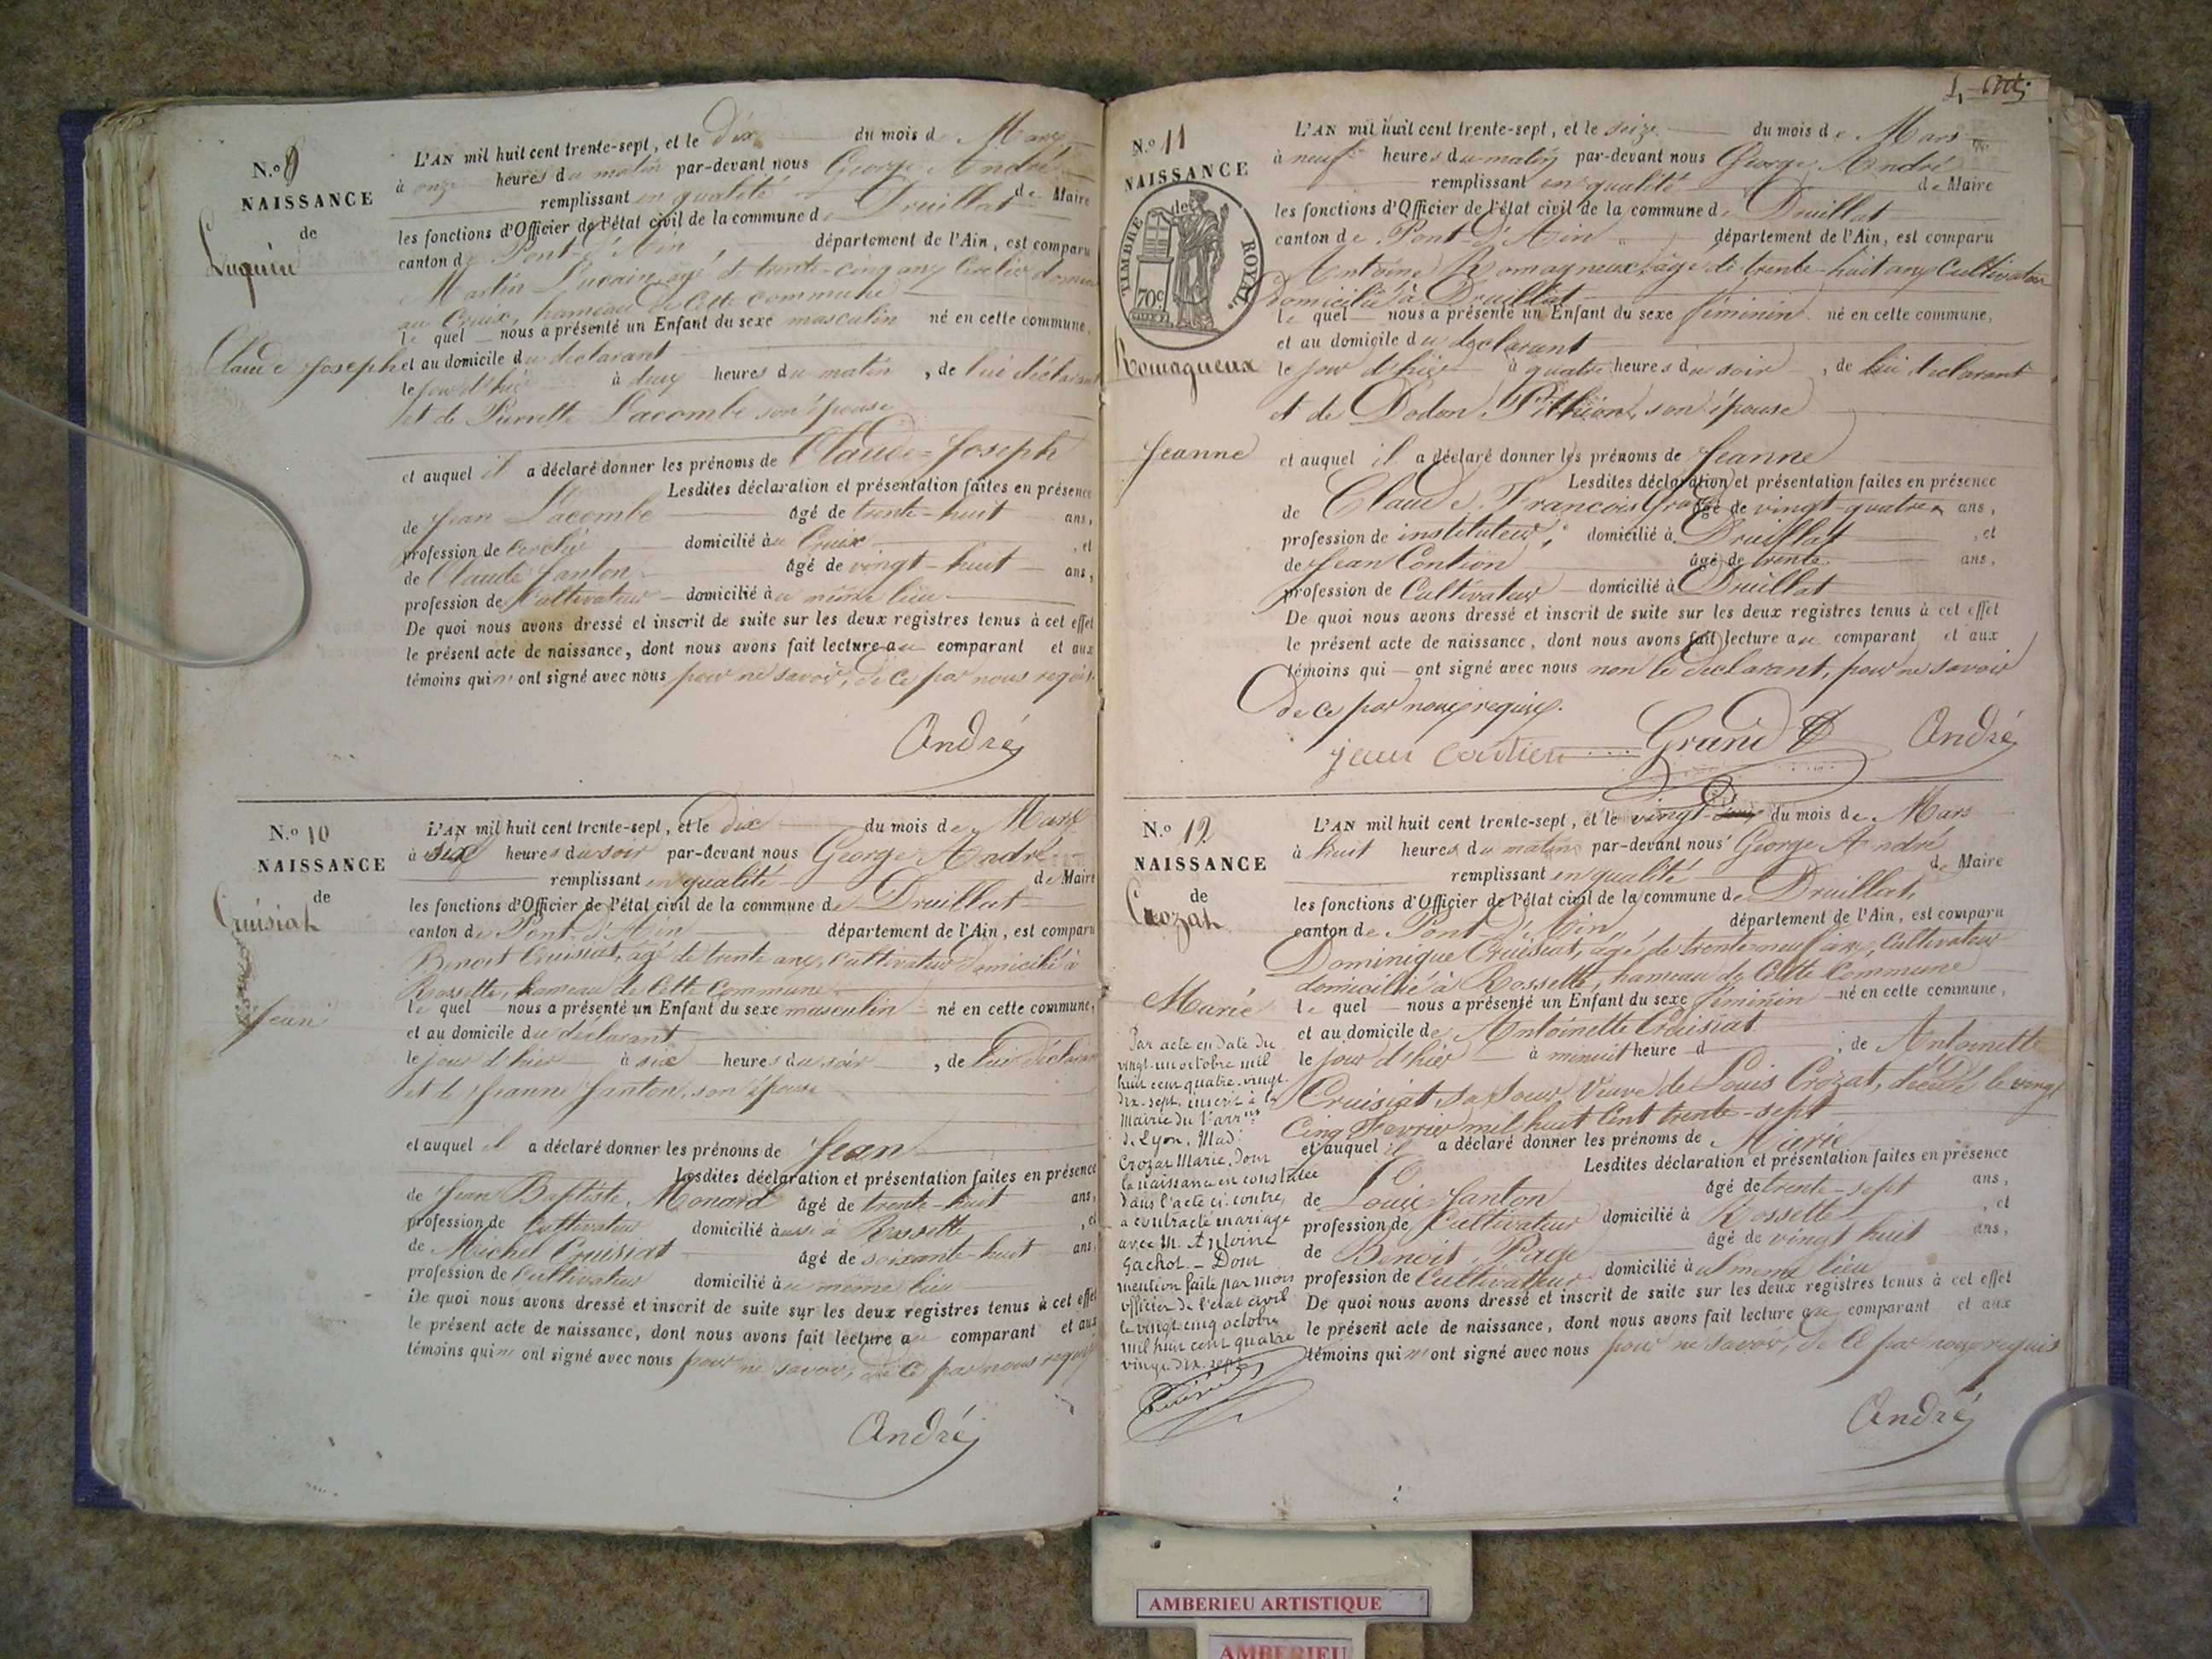 N.º 9
NAISSANCE
de
Luquin
Claude Joseph
L'AN mil huit cent trente-sept, et le dix du mois de Mars
à onze heures du matin par-devant nous George André
remplissant en qualité de Maire
les fonctions d'Officier de l'état civil de la commune de Druillat
canton de Pont-d'Ain département de l'Ain, est comparu
Martin Luquin, agé de trente-cinq ans
au Creux, hameau de cette commune
le quel nous a présenté un Enfant du sexe masculin né en cette commune,
et au domicile du déclarant
le jour d'hier à deux heures du matin, de lui déclarant
et de Pierrette Lacombe son épouse
et auquel il a déclaré donner les prénoms de Claude-Joseph
Lesdites déclaration et présentation faites en présence
de Jean Lacombe âgé de trente-huit ans,
profession de cerclier domicilié au Creux, et
de Claude Janton âgé de vingt-huit ans,
profession de Cultivateur domicilié au même lieu
De quoi nous avons dressé et inscrit de suite sur les deux registres tenus à cet effet
le présent acte de naissance, dont nous avons fait lecture au comparant et aux
témoins qui n'ont signé avec nous pour ne savoir, de ce par nous requis.
André
N.º 10
NAISSANCE
de
Cruisiat
Jean
L'AN mil huit cent trente-sept, et le dix du mois de Mars
à six heures du soir par-devant nous George André
remplissant en qualité de Maire
les fonctions d'Officier de l'état civil de la commune de Druillat
canton de Pont-d'Ain département de l'Ain, est comparu
Benoit Cruisiat, agé de trente ans, Cultivateur domicilié à
Rossette, hameau de cette Commune
le quel nous a présenté un Enfant du sexe masculin né en cette commune,
et au domicile du déclarant
le jour d'hier à six heures du soir, de lui déclarant
et de Jeanne Janton, son épouse
et auquel il a déclaré donner les prénoms de Jean
Lesdites déclaration et présentation faites en présence
de Jean Baptiste Monard âgé de trente-huit ans,
profession de Cultivateur domicilié aussi à Rossette, et
de Michel Cruisiat âgé de soixante-huit ans,
profession de Cultivateur domicilié au même lieu
De quoi nous avons dressé et inscrit de suite sur les deux registres tenus à cet effet
le présent acte de naissance, dont nous avons fait lecture au comparant et aux
témoins qui n'ont signé avec nous pour ne savoir, de ce par nous requis
André
N.º 11
NAISSANCE
de
TIMBRE ROYAL
70c
Romagneux
Jeanne
L'AN mil huit cent trente-sept, et le seize du mois de Mars
à neuf heures du matin par-devant nous George André
remplissant en qualité de Maire
les fonctions d'Officier de l'état civil de la commune de Druillat
canton de Pont-d'Ain département de l'Ain, est comparu
Antoine Romagneux, agé de trente-huit ans Cultivateur
domicilié à Druillat
le quel nous a présenté un Enfant du sexe féminin né en cette commune,
et au domicile du déclarant
le jour d'hier à quatre heures du soir, de lui déclarant
et de Dodon Pithion, son épouse
et auquel il a déclaré donner les prénoms de Jeanne
Lesdites déclaration et présentation faites en présence
de Claude François Grand âgé de vingt-quatre ans,
profession de instituteur, domicilié à Druillat, et
de Jean Contion âgé de trente ans,
profession de Cultivateur domicilié à Druillat
De quoi nous avons dressé et inscrit de suite sur les deux registres tenus à cet effet
le présent acte de naissance, dont nous avons fait lecture au comparant et aux
témoins qui ont signé avec nous non le déclarant, pour ne savoir
de ce par nous requis.
jean Grand André
N.º 12
NAISSANCE
de
Crozat
Marie
Par acte en date du
vingt-un octobre mil
huit cent quatre-vingt
dix-sept, inscrit à la
Mairie du 1er arr.
de Lyon, Mad.
Crozat Marie, dont
la naissance en constatée
dans l'acte ci-contre,
a contracté mariage
avec M. Antoine
Gachot. - Dont
mention faite par moi
officier de l'état civil
le vingt cinq octobre
mil huit cent quatre
vingt dix-sept
L'AN mil huit cent trente-sept, et le vingt du mois de Mars
à huit heures du matin par-devant nous George André
remplissant en qualité de Maire
les fonctions d'Officier de l'état civil de la commune de Druillat,
canton de Pont-d'Ain, département de l'Ain, est comparu
Dominique Cruisiat, agé de trente-neuf ans, Cultivateur
domicilié à Rossette, hameau de Cette Commune
le quel nous a présenté un Enfant du sexe féminin né en cette commune,
et au domicile de Antoinette Cruisiat
le jour d'hier à minuit heure d, de Antoinette
Cruisiat, sa soeur Veuve de Louis Crozat, décédé le vingt
Cinq Fevrier mil huit Cent trente-sept
et auquel il a déclaré donner les prénoms de Marie
Lesdites déclaration et présentation faites en présence
de Louis Janton âgé de trente-sept ans,
profession de Cultivateur domicilié à Rossette, et
de Benoit Page âgé de vingt huit ans,
profession de Cultivateur domicilié au même lieu
De quoi nous avons dressé et inscrit de suite sur les deux registres tenus à cet effet
le présent acte de naissance, dont nous avons fait lecture au comparant et aux
témoins qui n'ont signé avec nous pour ne savoir, de ce par nous requis
André
AMBERIEU ARTISTIQUE
AMBERIEU